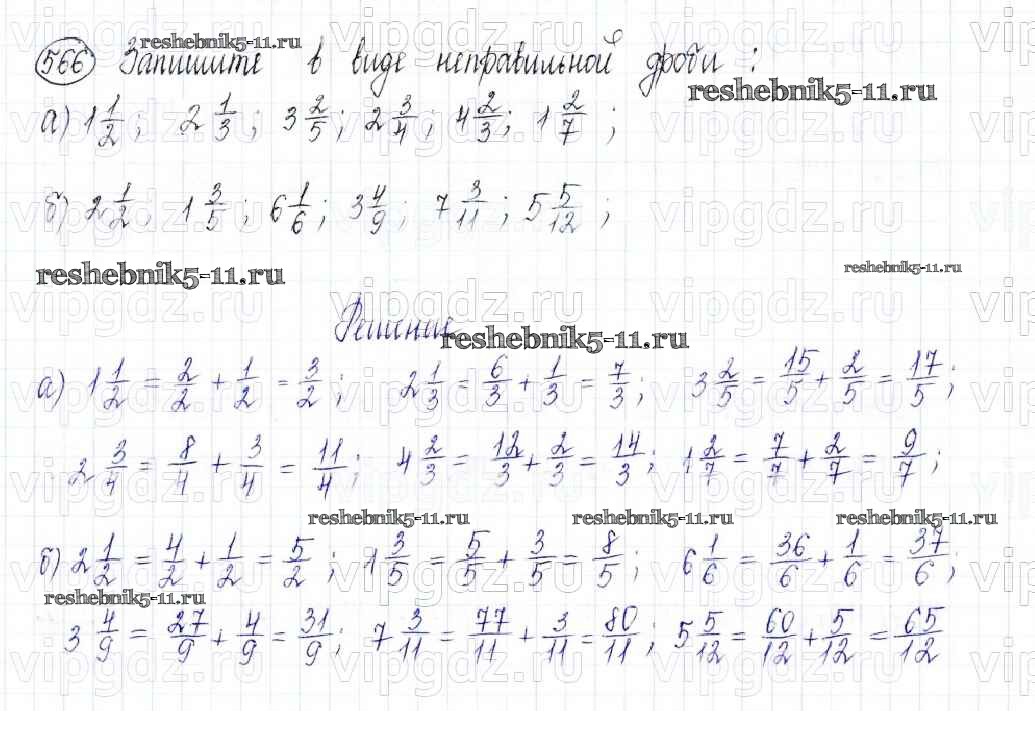 566 Запишите в виде неправильной дроби :
reshebnik5-11.ru
reshebnik5-11.ru
а) 1 1/2 ; 2 1/3 ; 3 2/5 ; 2 3/4 ; 4 2/3 ; 1 2/7 ;
б) 2 1/2 ; 1 3/5 ; 6 1/6 ; 3 4/9 ; 7 3/11 ; 5 5/12 ;
reshebnik5-11.ru reshebnik5-11.ru
Решение
reshebnik5-11.ru
а) 1 1/2 = 2/2 + 1/2 = 3/2 ; 2 1/3 = 6/3 + 1/3 = 7/3 ; 3 2/5 = 15/5 + 2/5 = 17/5 ;
2 3/4 = 8/4 + 3/4 = 11/4 ; 4 2/3 = 12/3 + 2/3 = 14/3 ; 1 2/7 = 7/7 + 2/7 = 9/7 ;
reshebnik5-11.ru reshebnik5-11.ru reshebnik5-11.ru
б) 2 1/2 = 4/2 + 1/2 = 5/2 ; 1 3/5 = 5/5 + 3/5 = 8/5 ; 6 1/6 = 36/6 + 1/6 = 37/6 ;
reshebnik5-11.ru
3 4/9 = 27/9 + 4/9 = 31/9 ; 7 3/11 = 77/11 + 3/11 = 80/11 ; 5 5/12 = 60/12 + 5/12 = 65/12
vipgdz.ru